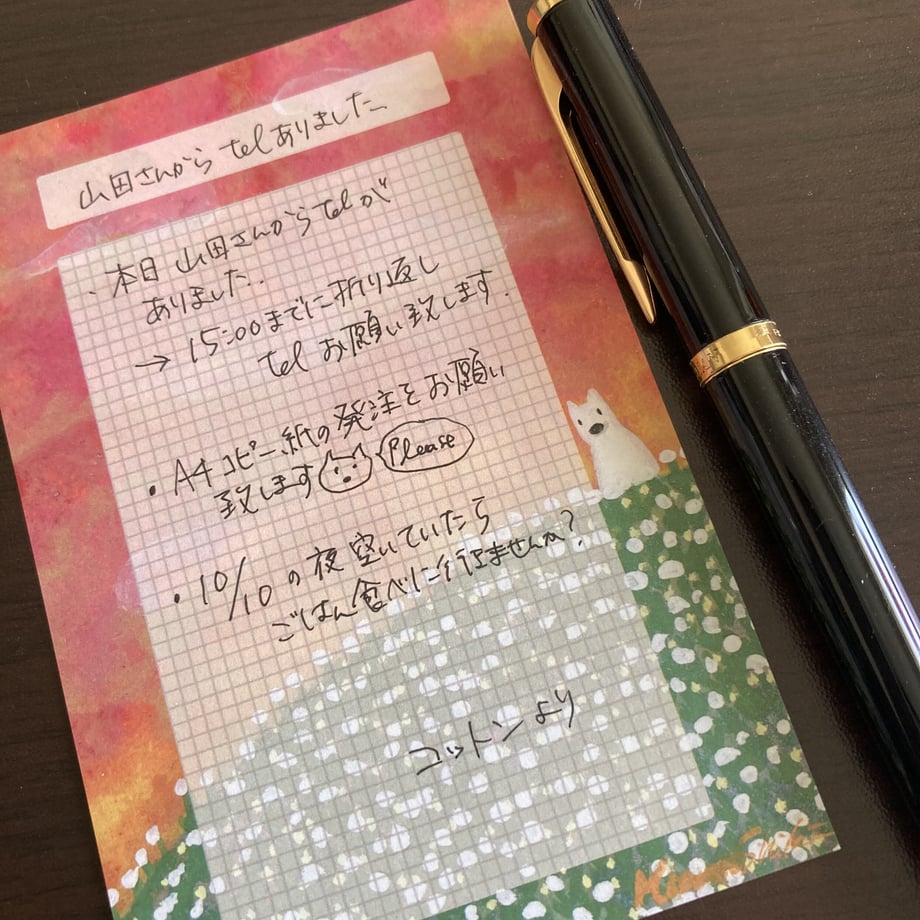 山田さんから telありました
・本日 山田さんからtelが
ありました.
→ 15:00までに折り返し
tel お願い致します.
・A4コピー紙の発注をお願い
致します Please
・10/10の夜空いていたら
ごはん食べに行きませんか?
コットンより